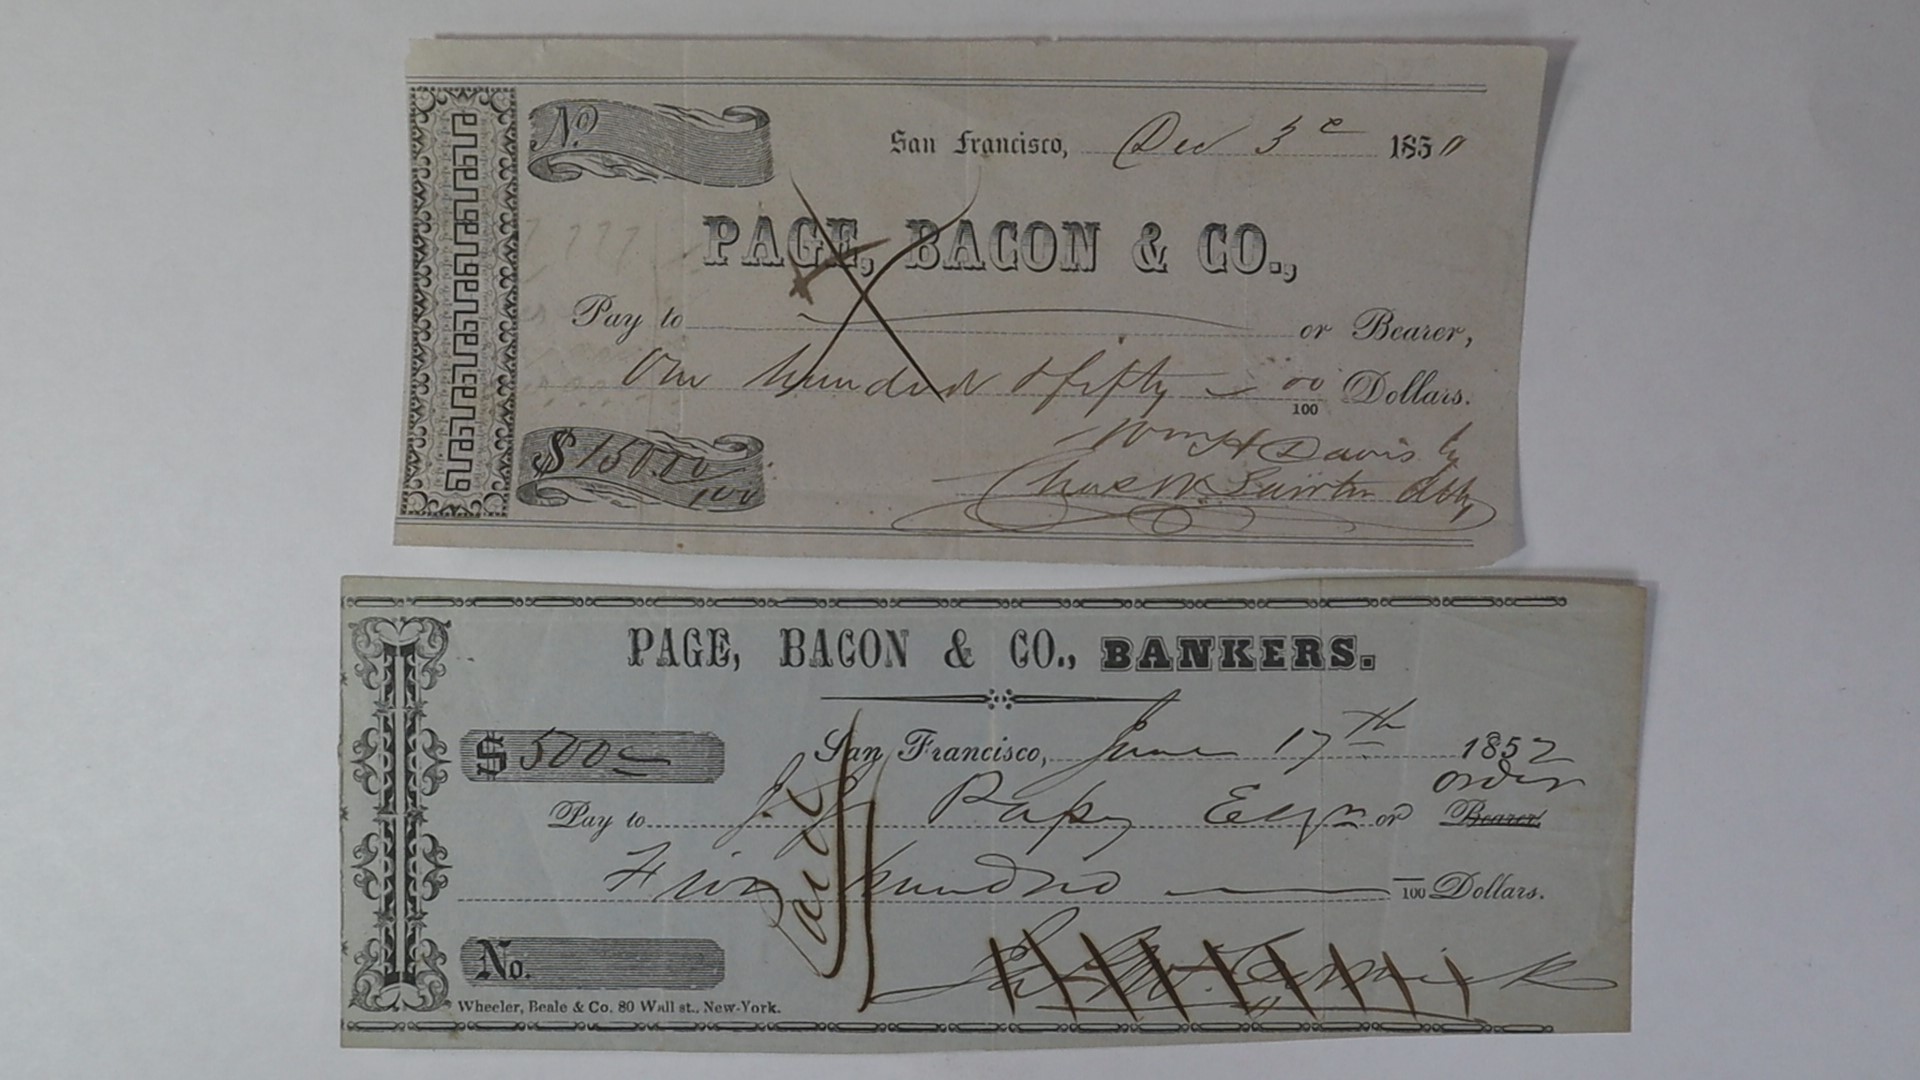 No.
San Francisco, Dec 3 1850
PAGE, BACON & CO.,
Pay to or Bearer,
One hundred & fifty 00/100 Dollars.
$150.00/100
Wm H Davis by
Chas W.
PAGE, BACON & CO., BANKERS.
$500
San Francisco, June 17th 1852
order
Pay to J. Papy Esqr or Bearer
Five hundred /100 Dollars.
Paid
No.
Wheeler, Beale & Co. 80 Wall st., New-York.